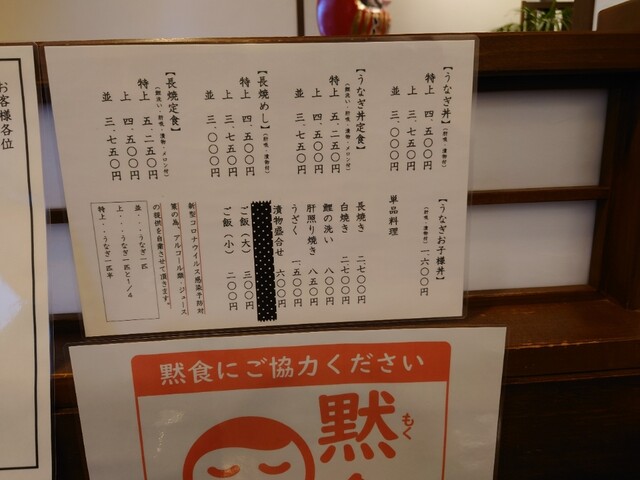 【うなぎ丼】（肝吸・漬物付）
特上 四、五〇〇円
上 三、七五〇円
並 三、〇〇〇円
【うなぎ丼定食】（鯉洗い・肝吸・漬物・メロン付）
特上 五、二五〇円
上 四、五〇〇円
並 三、七五〇円
【長焼めし】（肝吸・漬物付）
特上 四、五〇〇円
上 三、七五〇円
並 三、〇〇〇円
【長焼定食】（鯉洗い・肝吸・漬物・メロン付）
特上 五、二五〇円
上 四、五〇〇円
並 三、七五〇円
【うなぎお子様丼】
（肝吸・漬物付） 一、六〇〇円
単品料理
長焼き 二、七〇〇円
白焼き 二、七〇〇円
鯉の洗い 八〇〇円
肝照り焼き 八五〇円
うざく 一、五〇〇円
漬物盛合せ 六〇〇円
ご飯（大） 三〇〇円
ご飯（小） 二〇〇円
新型コロナウイルス感染予防対
策の為、アルコール類・ジュース
の提供を自粛させて頂きます。
並・・・うなぎ一匹
上・・・うなぎ一匹と1/4
特上・・・うなぎ一匹半
お客様各位
黙食にご協力ください
黙
もく